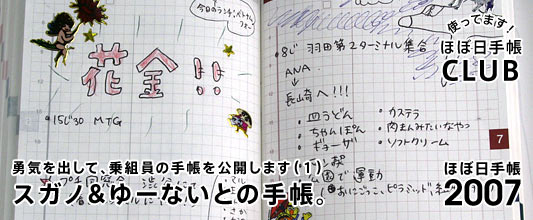 今日のランチ：ベトナム
フォー
花金!!
•15じ30 MTG
•8じ 羽田第2ターミナル集合
ANA
↓
長崎へ!!!
•皿うどん
•ちゃんぽん
•ギョーザ
•カステラ
•肉まんみたいなやつ
•ソフトクリーム
で運動
7
使ってます！
ほぼ日手帳
CLUB
勇気を出して、乗組員の手帳を公開します(1)
スカノ&ゆーないとの手帳。
ほぼ日手帳
2007